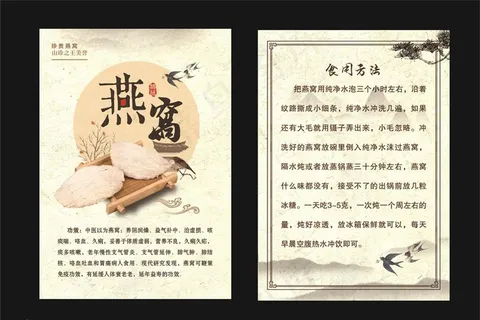 珍贵燕窝
山珍之王美誉
燕窝
功效：中医以为燕窝：养阴润燥、益气补中、治虚损、咳
痰喘、咯血、久痢，妥善于体质虚弱，营养不良，久痢久疟，
痰多咳嗽，老年慢性支气管炎、支气管延伸、肺气肿、肺结
核、咯血吐血和胃痛病人食用。现代研究发现，燕窝可鞭策
免疫功效，有延缓人体衰老，延年益寿的功效。
食用方法
把燕窝用纯净水泡三个小时左右，沿着
纹路撕成小细条，纯净水冲洗几遍，如果
还有大毛就用镊子弄出来，小毛忽略。冲
洗好的燕窝放碗里倒入纯净水沫过燕窝，
隔水炖或者放蒸锅蒸三十分钟左右，燕窝
什么味都没有，接受不了的出锅前放几粒
冰糖。一天吃3~5克，一次炖一个周左右的
量，炖好凉透，放冰箱保鲜就可以，每天
早晨空腹热水冲饮即可。